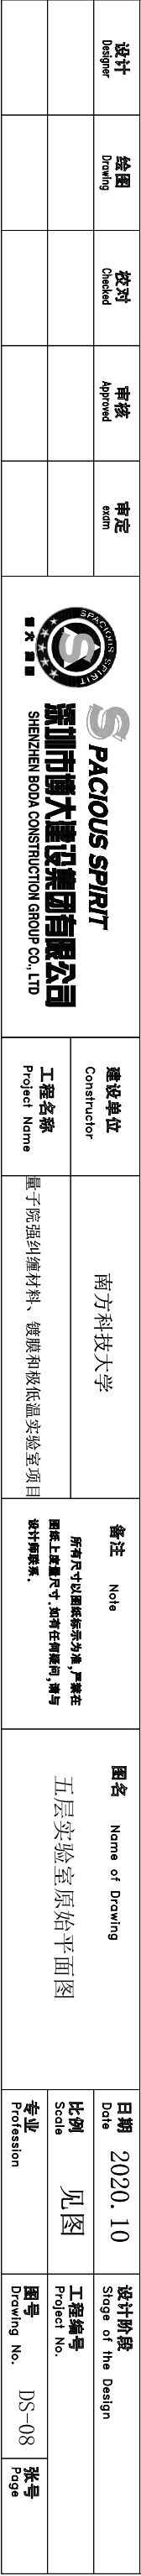 设计
Designer
绘图
Drawing
校对
Checked
审核
Approved
审定
exam
SPACIOUS SPIRIT
S
博大建设
SPACIOUS SPIRIT
深圳市博大建设集团有限公司
SHENZHEN BODA CONSTRUCTION GROUP CO., LTD
建设单位
Constructor
南方科技大学
工程名称
Project Name
量子院强纠缠材料、镀膜和极低温实验室项目
备注 Note
所有尺寸以图纸标示为准,严禁在
图纸上度量尺寸.如有任何疑问,请与
设计师联系.
图名 Name of Drawing
五层实验室原始平面图
日期
Date
2020.10
设计阶段
Stage of the Design
比例
Scale
见图
工程编号
Project No.
专业
Profession
图号
Drawing No.
DS-08
张号
Page